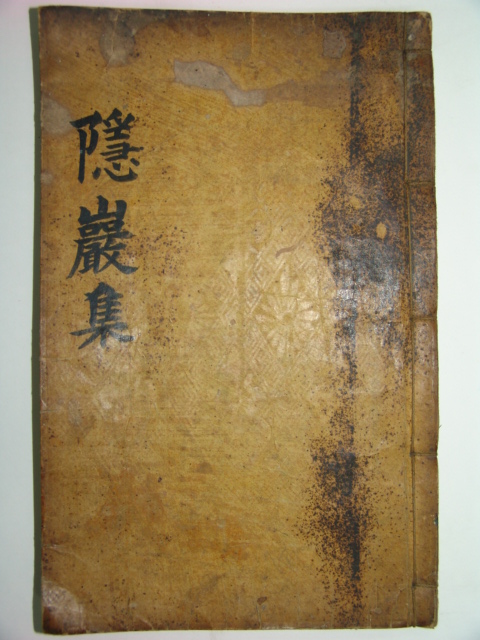 隱巖集